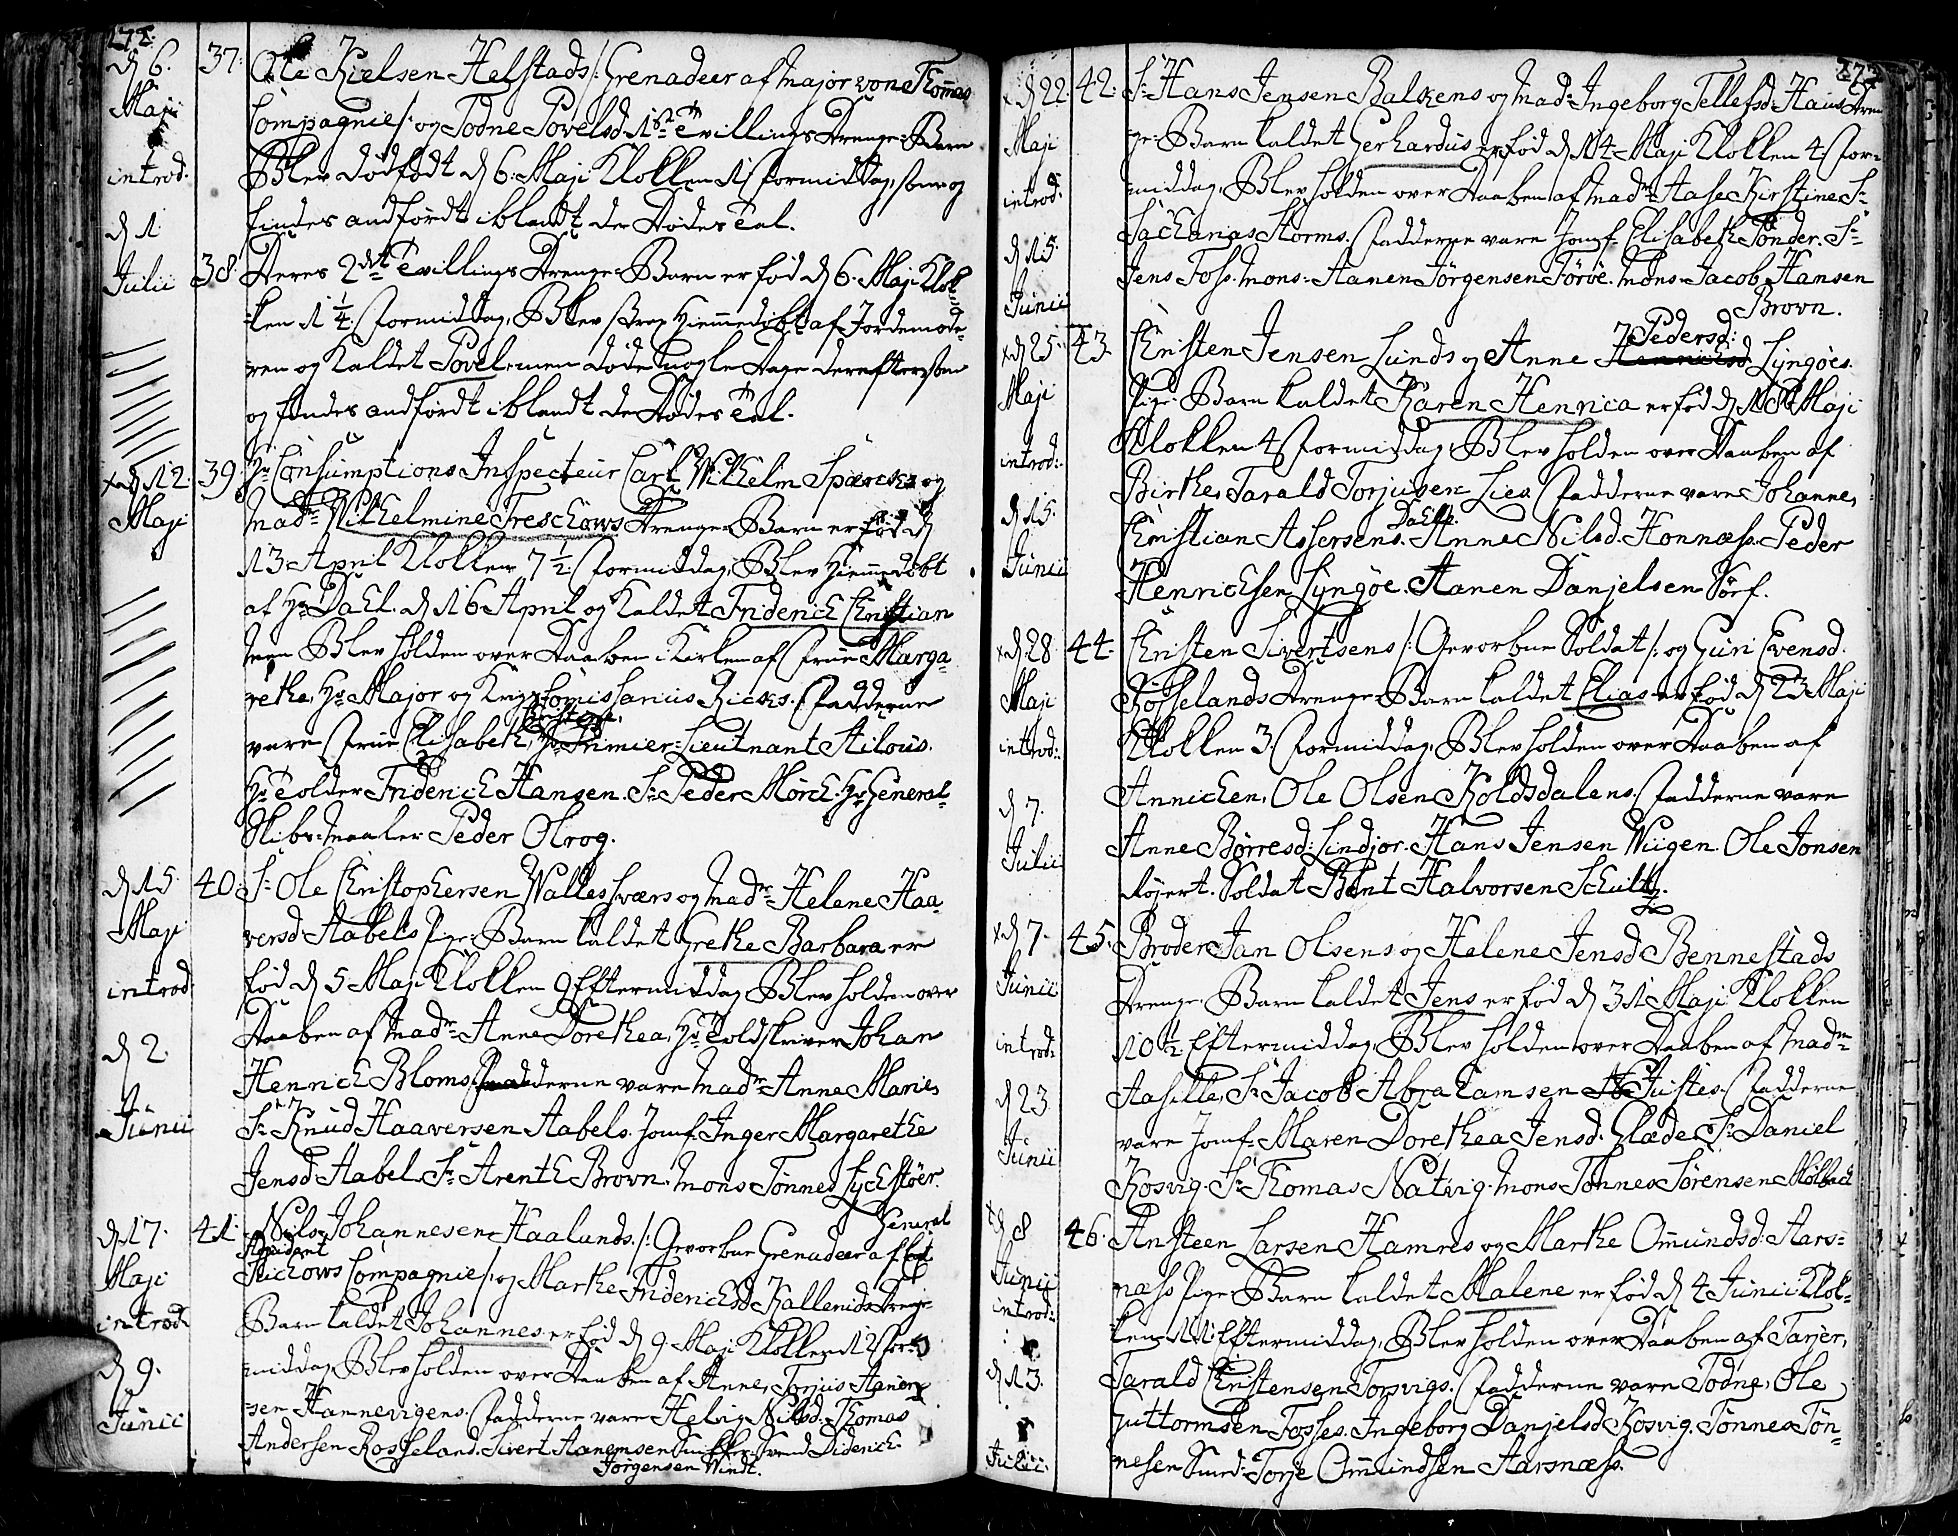 272.
d 6. Maji introd: d 1 Julii
37: Ole Kielsen Helstads /: Grenadeer af Major von Thomas
Compagnie /: og Todne Povelsd 1ste Tvillings Drenge-Barn
Blev dødfødt d 6. Maji Klokken 1 formiddag, som og
findes anført iblandt de Dødes Tal.
38. Deres 2det Tvillings Drenge-Barn er fød d 6. Maji Klok-
ken 1 1/4 formiddag, Blev strax Hiemmedøbt af Jordemode-
ren og Kaldet Povel, men døde nogle Dage derefter, som
og findes anført iblandt de Dødes Tal.
x d 12. Maji
39. Hr Consumptions Inspecteur Carl Wilhelm Spärcks og
Madme Wilhelmine Treschows Drenge Barn er fød d
13 April Klokken 7 1/2 formiddag, Blev Hiemmedøbt
af Hr Dahl. d 16 April og Kaldet Friderich Christian
men Blev holden over Daaben i Kirken af Frue Marga-
rethe, Hr Major og Krigs Comissarius Ricks. Fadderne
vare Frue Elisabeth, Hr Primier-Lieutnant Ailous.
Hr Tolder Friderich Hansen. Sr Peder Mörch. Hr General-
Skibs-Maaler Peder Olrog.
d 15 Maji introd: d 2. Junii
40. Sr Ole Christophersen Wallessværs og Madme Helene Haa-
versd Aabels Pige-Barn kaldet Grethe Barbara er
fød d 5 Maji Klokken 9 Eftermiddag Blev holden over
Daaben af Madme Anne Dorethea, Hr Toldskriver Johan
Henrich Bloms. Fadderne vare Madme Anne Marie,
Sr Knud Haaversen Aabels. Jomf. Inger Margarethe
Jensd Aabel. Sr Arenth Brovn. Mons Tönnes Lyckstöer.
d 17. Maji introd: d 9. Junii
41. Nils Johannesen Haalands /: Gevorbne Grenadeer af General
Stichows Compagnie /: og Marthe Friderichsd Kallenids Drenge
Barn kaldet Johannes er fød d 9 Maji Klokken 12 for-
middag Blev holden over Daaben af Anne, Torjus Aanen-
sen Hannevigens. Fadderne vare Helvig Nilsd. Thomas
Andersen Rosseland. Sivert Aanemsen Svend Diderich
Jørgensen Windt.
273
x d 22. Maji introd: d 15. Junii
42. Sr Hans Jensen Balkens og Mad: Ingeborg Tellefsd: Hauis Dren-
ge-Barn kaldet Gerhardus er fød d 14 Maji Klokken 4 for-
middag, Blev holden over Daaben af Madme Aase Kirstine Sr
Sacharias Storms. Fadderne vare Jomf. Elisabeth Tönder. Sr
Jens Foss. Mons. Aanen Jørgensen Töröe. Mons. Jacob Hansen
Brovn.
x d 25. Maji introd: d 15. Junii
43. Christen Jensen Lunds og Anne Pedersd: Lyngöes.
Pige-Barn kaldet Karen Henrica er fød d 18 Maji
Klokken 4 formiddag, Blev holden over Daaben af
Birthe, Tarald Torjusens Lies. Fadderne vare Johanne,
Christian Assersens Dahle. Anne Nilsd. Honnæs. Peder
Henrichsen Lyngöe. Aanen Danjelsen Sörf.
x d 28 Maji introd: d 7. Julii
44. Christen Sivertsens /: Gevorben Soldat /: og Guri Evensd.
Røsselands Drenge-Barn kaldet Elias er fød d 23 Maji
Klokken 3. formiddag, Blev holden over Daaben af
Annichen, Ole Olsen Koldsdalens. Fadderne vare
Anne Börresd: Lindjor. Hans Jensen Wiigen. Ole Jonsen
Röjert. Soldat Bent Halvorsen Schultz.
x d 7. Junii introd: d 23 Junii
45. Broder Jan Olsens og Helene Jensd Bennestads
Drenge-Barn kaldet Jens er fød d 31 Maji Klokken
10 1/2 Eftermiddag, Blev holden over Daaben af Madme
Aasille, Sr Jacob Abrahamsen Justes. Fadderne
vare Jomf. Maren Dorethea Jensd. Glæde. Sr Daniel
Kosvig. Sr Thomas Natvig. Mons Tönnes Sörensen Molbach
d 8 Junii introd: d 13. Julii.
46. Ansteen Larsen Hamres og Marthe Omundsd: Aars-
næss Pige-Barn kaldet Malene er fød d 4 Junii Klok-
ken 11. Eftermiddag, Blev holden over Daaben af Tarjer,
Tarald Christensen Torsvigs. Fadderne vare Todne, Ole
Guttormsen Fosses. Ingeborg Danjelsd Kosvig. Tönnes Tön-
nesen Smed. Torje Omundsen Aarsnæss.